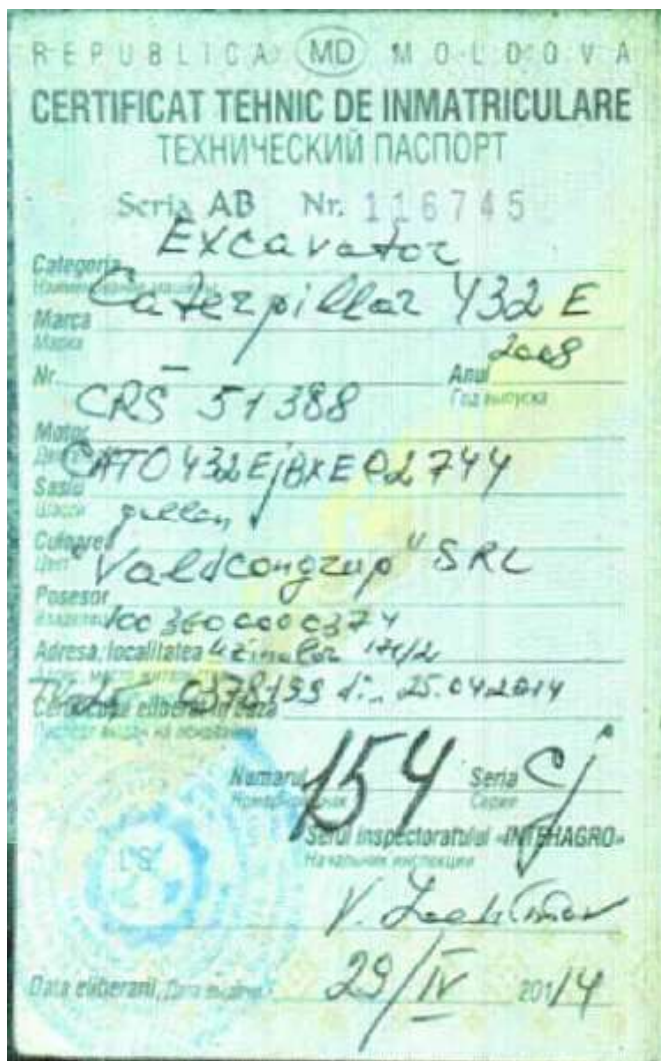 REPUBLICA MD MOLDOVA
CERTIFICAT TEHNIC DE INMATRICULARE
ТЕХНИЧЕСКИЙ ПАСПОРТ
Seria AB Nr. 116745
Categoria Excavator
Наименование машины
Marca Caterpillar 432 E
Марка
Nr. — Anul 2008
Год выпуска
Motor CRS 51388
Sasiu CAT0432EjBXE02744
Шасси
Culoarea
Цвет
Posesor "Valdcongrup" SRL
Владелец 1003600000374
Adresa, localitatea Uzinelor 171/2
0378199 din 25.04.2014
Certificatul eliberat in baza
Паспорт выдан на основании
Numarul 154 Seria Cj
Серия
Seful inspectoratului «INTEHAGRO»
Начальник инспекции
L.S.
V.
Data eliberarii, Дата выдачи 29/IV 2014